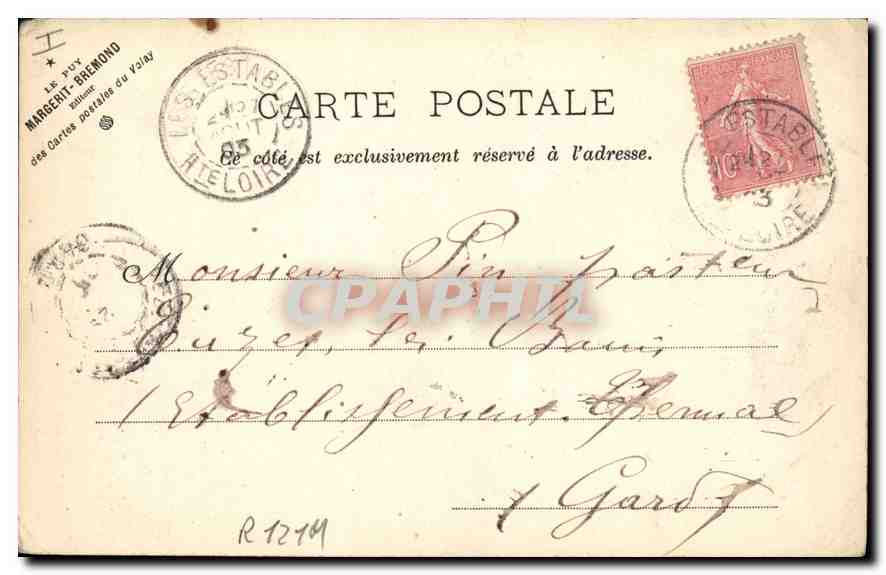 I
LE PUY
MARGERIT-BREMOND
Editeur
des Cartes postales du Velay
LES ESTABLES
AOUT
HTE LOIRE
CARTE POSTALE
Ce côté est exclusivement réservé à l'adresse.
10
ESTABL
LOIRE
Monsieur Pin pasteur
CPAPHIL
Euzet les Bains
(Etablissement Thermal)
(Gard)
R1214